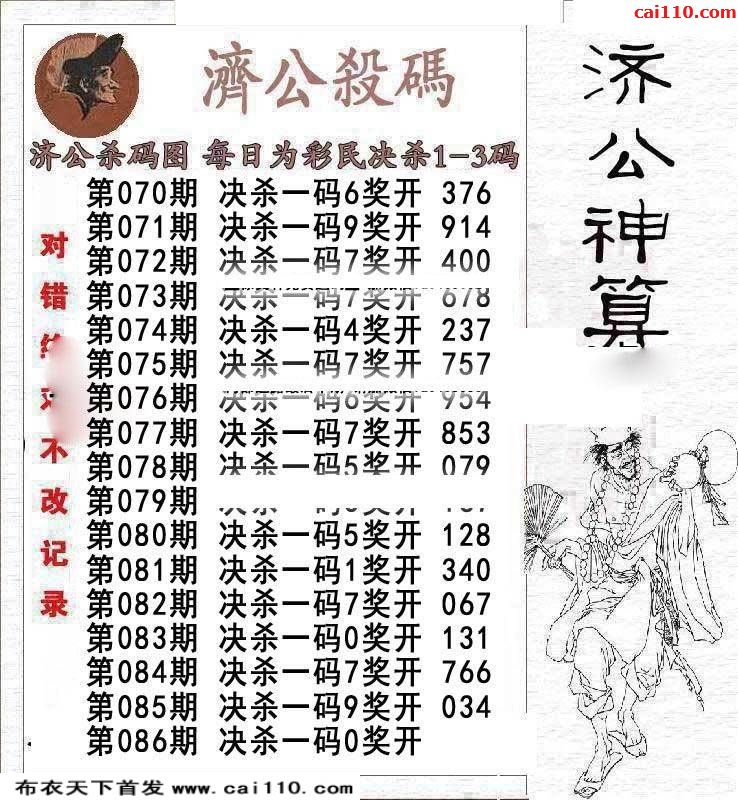 cai110.com
濟公殺碼
济公杀码图 每日为彩民决杀1-3码
第070期 决杀一码6奖开 376
第071期 决杀一码9奖开 914
第072期 决杀一码7奖开 400
第073期 决杀一码7奖开 678
第074期 决杀一码4奖开 237
第075期 决杀一码7奖开 757
第076期 决杀一码6奖开 954
第077期 决杀一码7奖开 853
第078期 决杀一码5奖开 079
第079期
第080期 决杀一码5奖开 128
第081期 决杀一码1奖开 340
第082期 决杀一码7奖开 067
第083期 决杀一码0奖开 131
第084期 决杀一码7奖开 766
第085期 决杀一码9奖开 034
第086期 决杀一码0奖开
对错
不改记录
济公神算
布衣天下首发 www.cai110.com